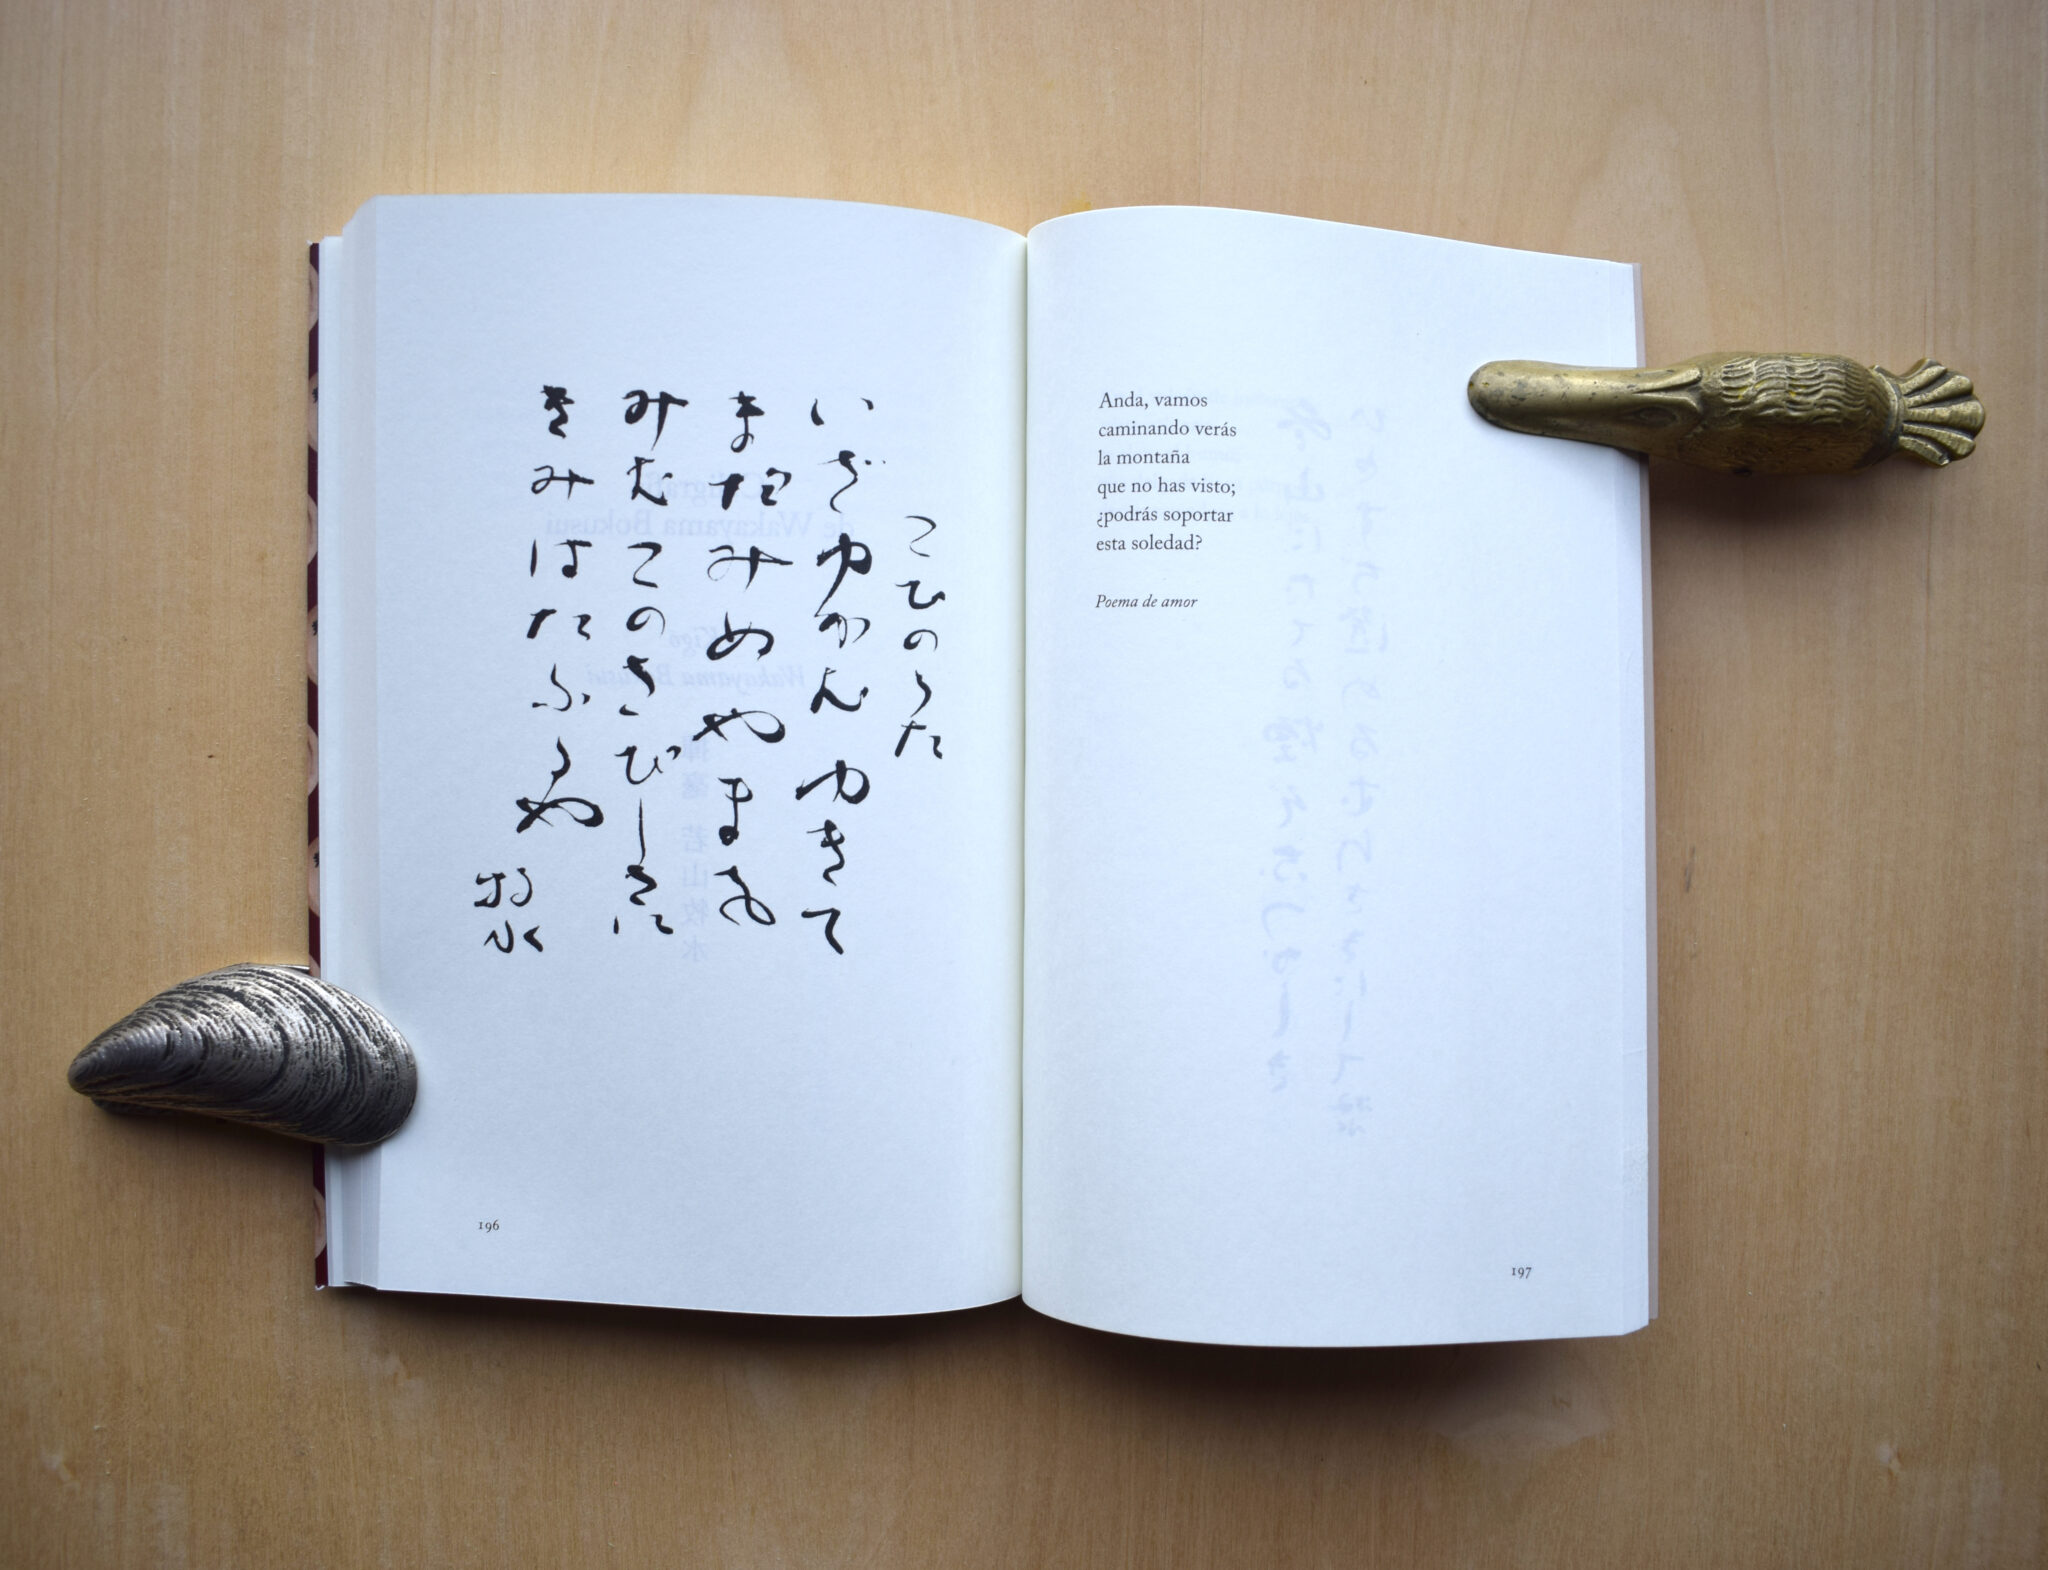 こひのうた
いざゆかむゆきて
まだみぬやまを
みむこのさびしさに
きみはたふるや
牧水
196
Anda, vamos
caminando verás
la montaña
que no has visto;
¿podrás soportar
esta soledad?
Poema de amor
197